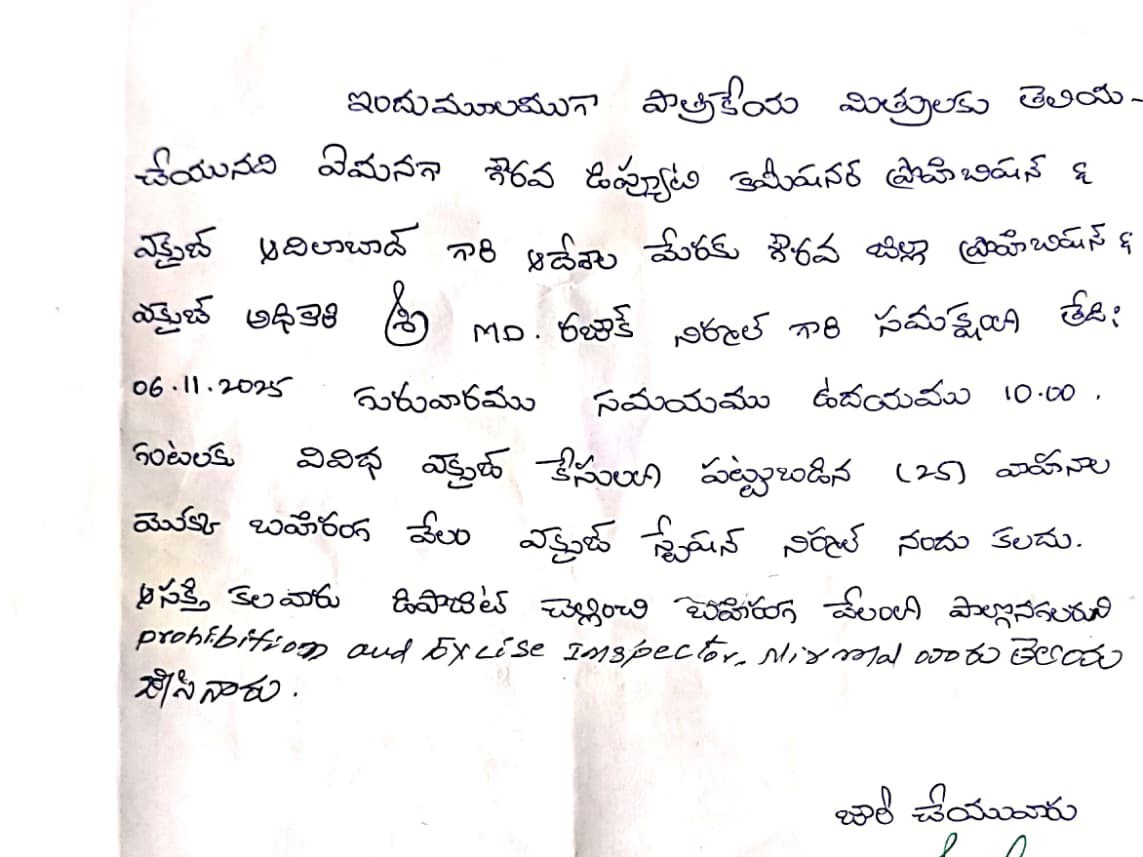 ఇందుమూలముగా పాత్రికేయ మిత్రులకు తెలియ-
చేయునది ఏమనగా గౌరవ డిప్యూటి కమీషనర్ ప్రొహిబిషన్ &
ఎక్సైజ్ ఆదిలాబాద్ గారి ఆదేశాల మేరకు గౌరవ జిల్లా ప్రొహిబిషన్ &
ఎక్సైజ్ అధికారి శ్రీ MD. రజాక్ నిర్మల్ గారి సమక్షంలో తేది:
06.11.2025 గురువారము సమయము ఉదయము 10.00.
గంటలకు వివిధ ఎక్సైజ్ కేసులలో పట్టుబడిన (25) వాహనాల
యొక్క బహిరంగ వేలం ఎక్సైజ్ స్టేషన్ నిర్మల్ నందు కలదు.
ఆసక్తి కలవారు డిపాజిట్ చెల్లించి బహిరంగ వేలంలో పాల్గొనగలరని
prohibition and Excise Inspector. Nirmal వారు తెలియ
జేసినారు.
జారీ చేయువారు